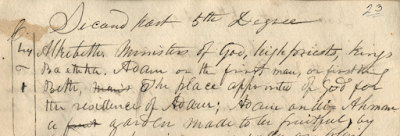 23
Second part 5th Degree
Alkebeth. Ministers of God, high priests, Kings
Adam or the first man, or first king
Beth, mans The place appointed of God for
the residence of Adam; Adam ondi Ahman
a garden made to be fruitful, by